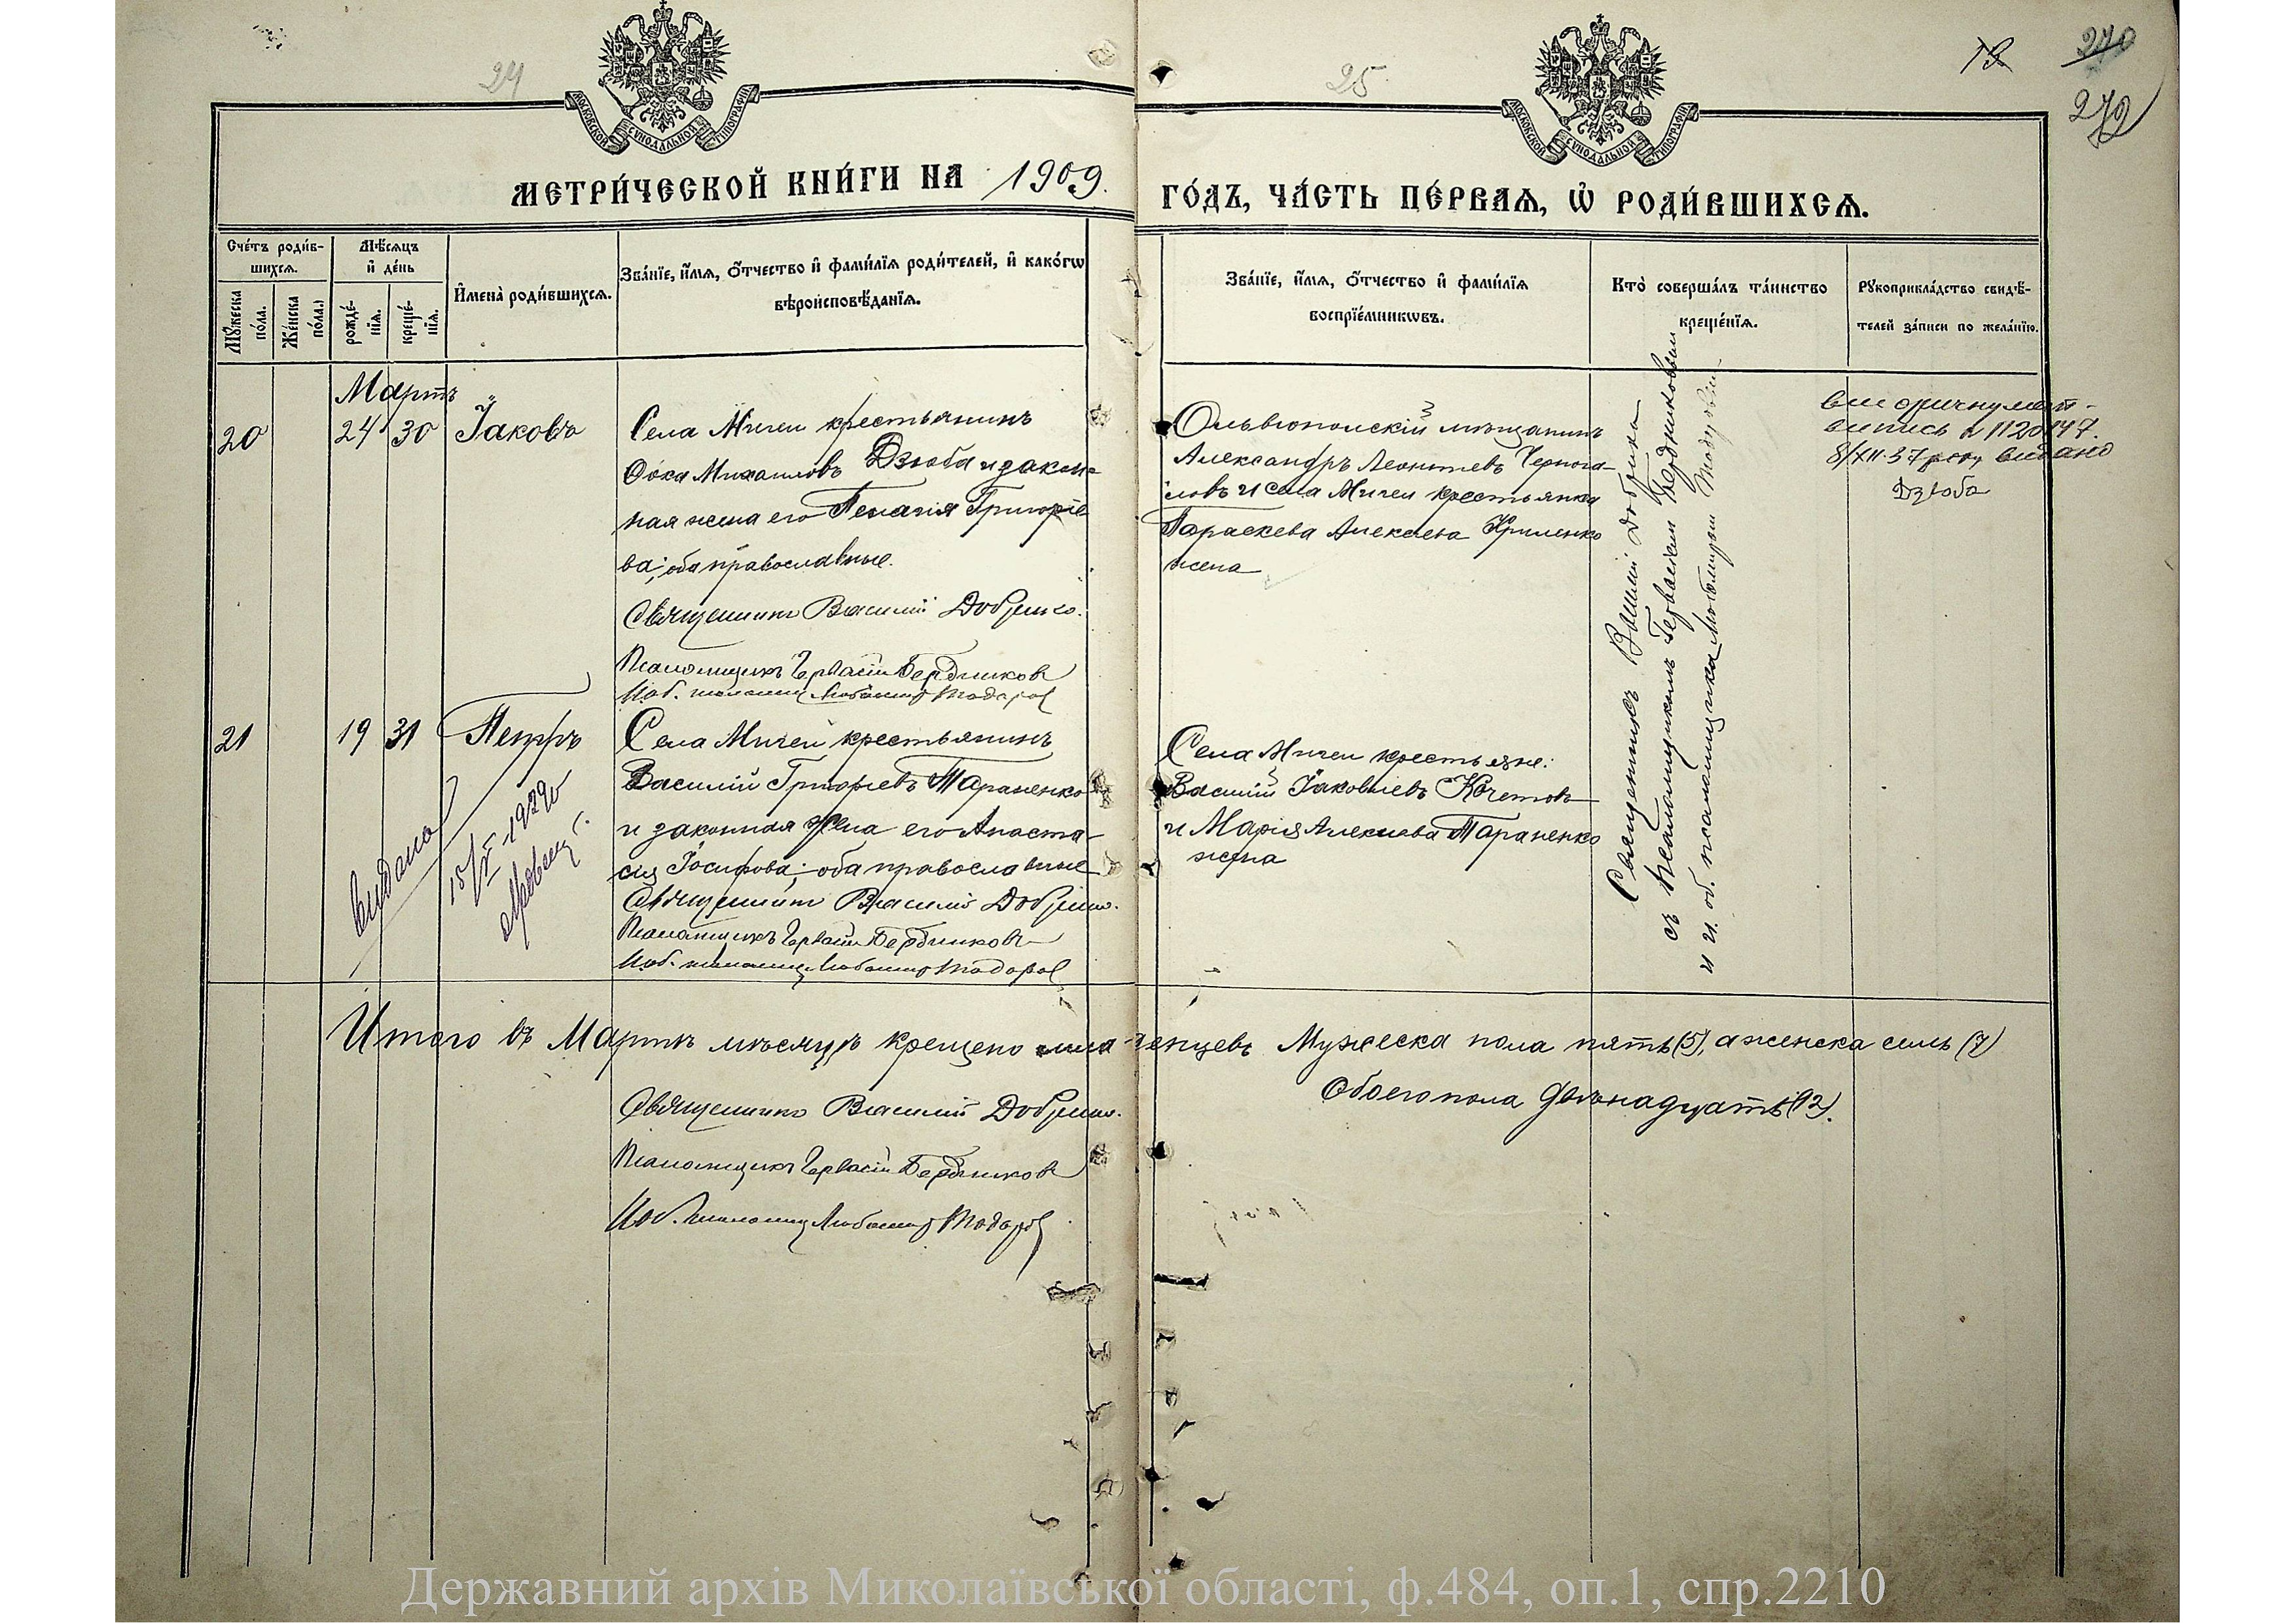 24
25
19
270
272
МОСКОВСКОЙ СѴНОДАЛЬНОЙ ТИПОГРАФІИ
МОСКОВСКОЙ СѴНОДАЛЬНОЙ ТИПОГРАФІИ
МЕТРИ́ЧЕСКОЙ КНИ́ГИ НА 1909.
ГО́ДЪ, ЧА́СТЬ ПЕ́РВАѦ, Ѡ҆ РОДИ́ВШИХСѦ.
Сче́тъ роди́в-
шихсѧ.
Мꙋ́жеска по́ла.
Же́нска по́ла.
Мѣ́сѧцъ
и҆ де́нь
рожде́-
нїѧ.
креще́-
нїѧ.
И҆мена̀ роди́вшихсѧ.
Зва́нїе, и҆́мѧ, ѻ҆́тчество и҆ фами́лїѧ роди́телей, и҆ како́гѡ
вѣроисповѣ́данїѧ.
Зва́нїе, и҆́мѧ, ѻ҆́тчество и҆ фами́лїѧ
воспрїе́мникѡвъ.
Кто̀ соверша́лъ та́инство
креще́нїѧ.
Рꙋкоприкла́дство свидѣ́-
телей за́писи по жела́нїю.
Мартъ
20
24
30
Іаковъ
Села Мигеи крестьянинъ
Ѳока Михаиловъ Дзюба и закон-
ная жена его Пелагія Григоріе-
ва; оба православные.
Священникъ Василій Добрянко.
Псаломщикъ Гервасій Бердников
И. об. псаломщ. Любомир Тодоров
Ольвіопольскій мѣщанинъ
Александръ Леонтіевъ Чернога-
ловъ и села Мигеи крестьянка
Параскева Алексѣева Криленко
жена
Священникъ Василій Добрянко
съ псаломщикомъ Гервасіем Бердниковым
и и. об. псаломщика Любомиром Тодоровым
випись №112047.
8/XII-37 року видано
Дзюба
21
19
31
Петръ
видано
15/VI-1929
Села Мигеи крестьянинъ
Василій Григорьевъ Тараненко
и законная жена его Анаста-
сія Іосифова; оба православные
Священникъ Василій Добрянко.
Псаломщикъ Гервасій Бердников
И. об. псаломщ. Любомир Тодоров
Села Мигеи крестьяне:
Василій Іаковлевъ Кочетовъ
и Марія Алексѣева Тараненко
жена
Итого въ Мартѣ мѣсяцѣ крещено младенцевъ Мужеска пола пять (5), а женска семь (7)
Обоего пола двѣнадцать (12).
Священникъ Василій Добрянко.
Псаломщикъ Гервасій Бердников
И об. псаломщ. Любомир Тодоров
Державний архів Миколаївської області, ф.484, оп.1, спр.2210